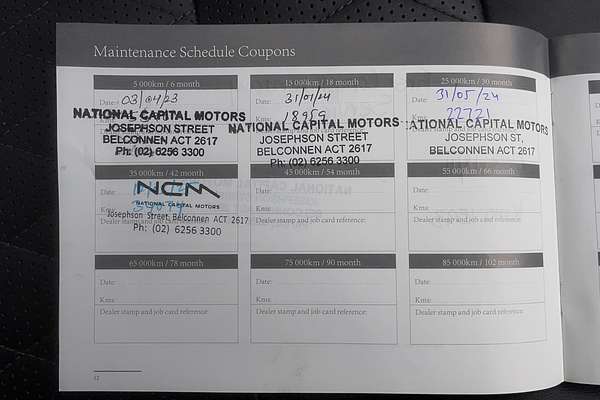 Maintenance Schedule Coupons
5 000km / 6 month
Date: 03/04/23
NATIONAL CAPITAL MOTORS
JOSEPHSON STREET
BELCONNEN ACT 2617
Ph: (02) 6256 3300
15 000km / 18 month
Date: 31/01/24
18959
NATIONAL CAPITAL MOTORS
JOSEPHSON STREET
BELCONNEN ACT 2617
Ph: (02) 6256 3300
25 000km / 30 month
31/05/24
22721
NATIONAL CAPITAL MOTORS
JOSEPHSON ST,
BELCONNEN ACT 2617
35 000km / 42 month
NCM
NATIONAL CAPITAL MOTORS
Kms:
Josephson Street, Belconnen ACT 2617
Ph: (02) 6256 3300
45 000km / 54 month
Date:
Kms:
Dealer stamp and job card reference:
55 000km / 66 month
Date:
Kms:
Dealer stamp and job card reference:
65 000km / 78 month
Date:
Kms:
Dealer stamp and job card reference:
75 000km / 90 month
Date:
Kms:
Dealer stamp and job card reference:
85 000km / 102 month
Date:
Kms:
Dealer stamp and job card reference: